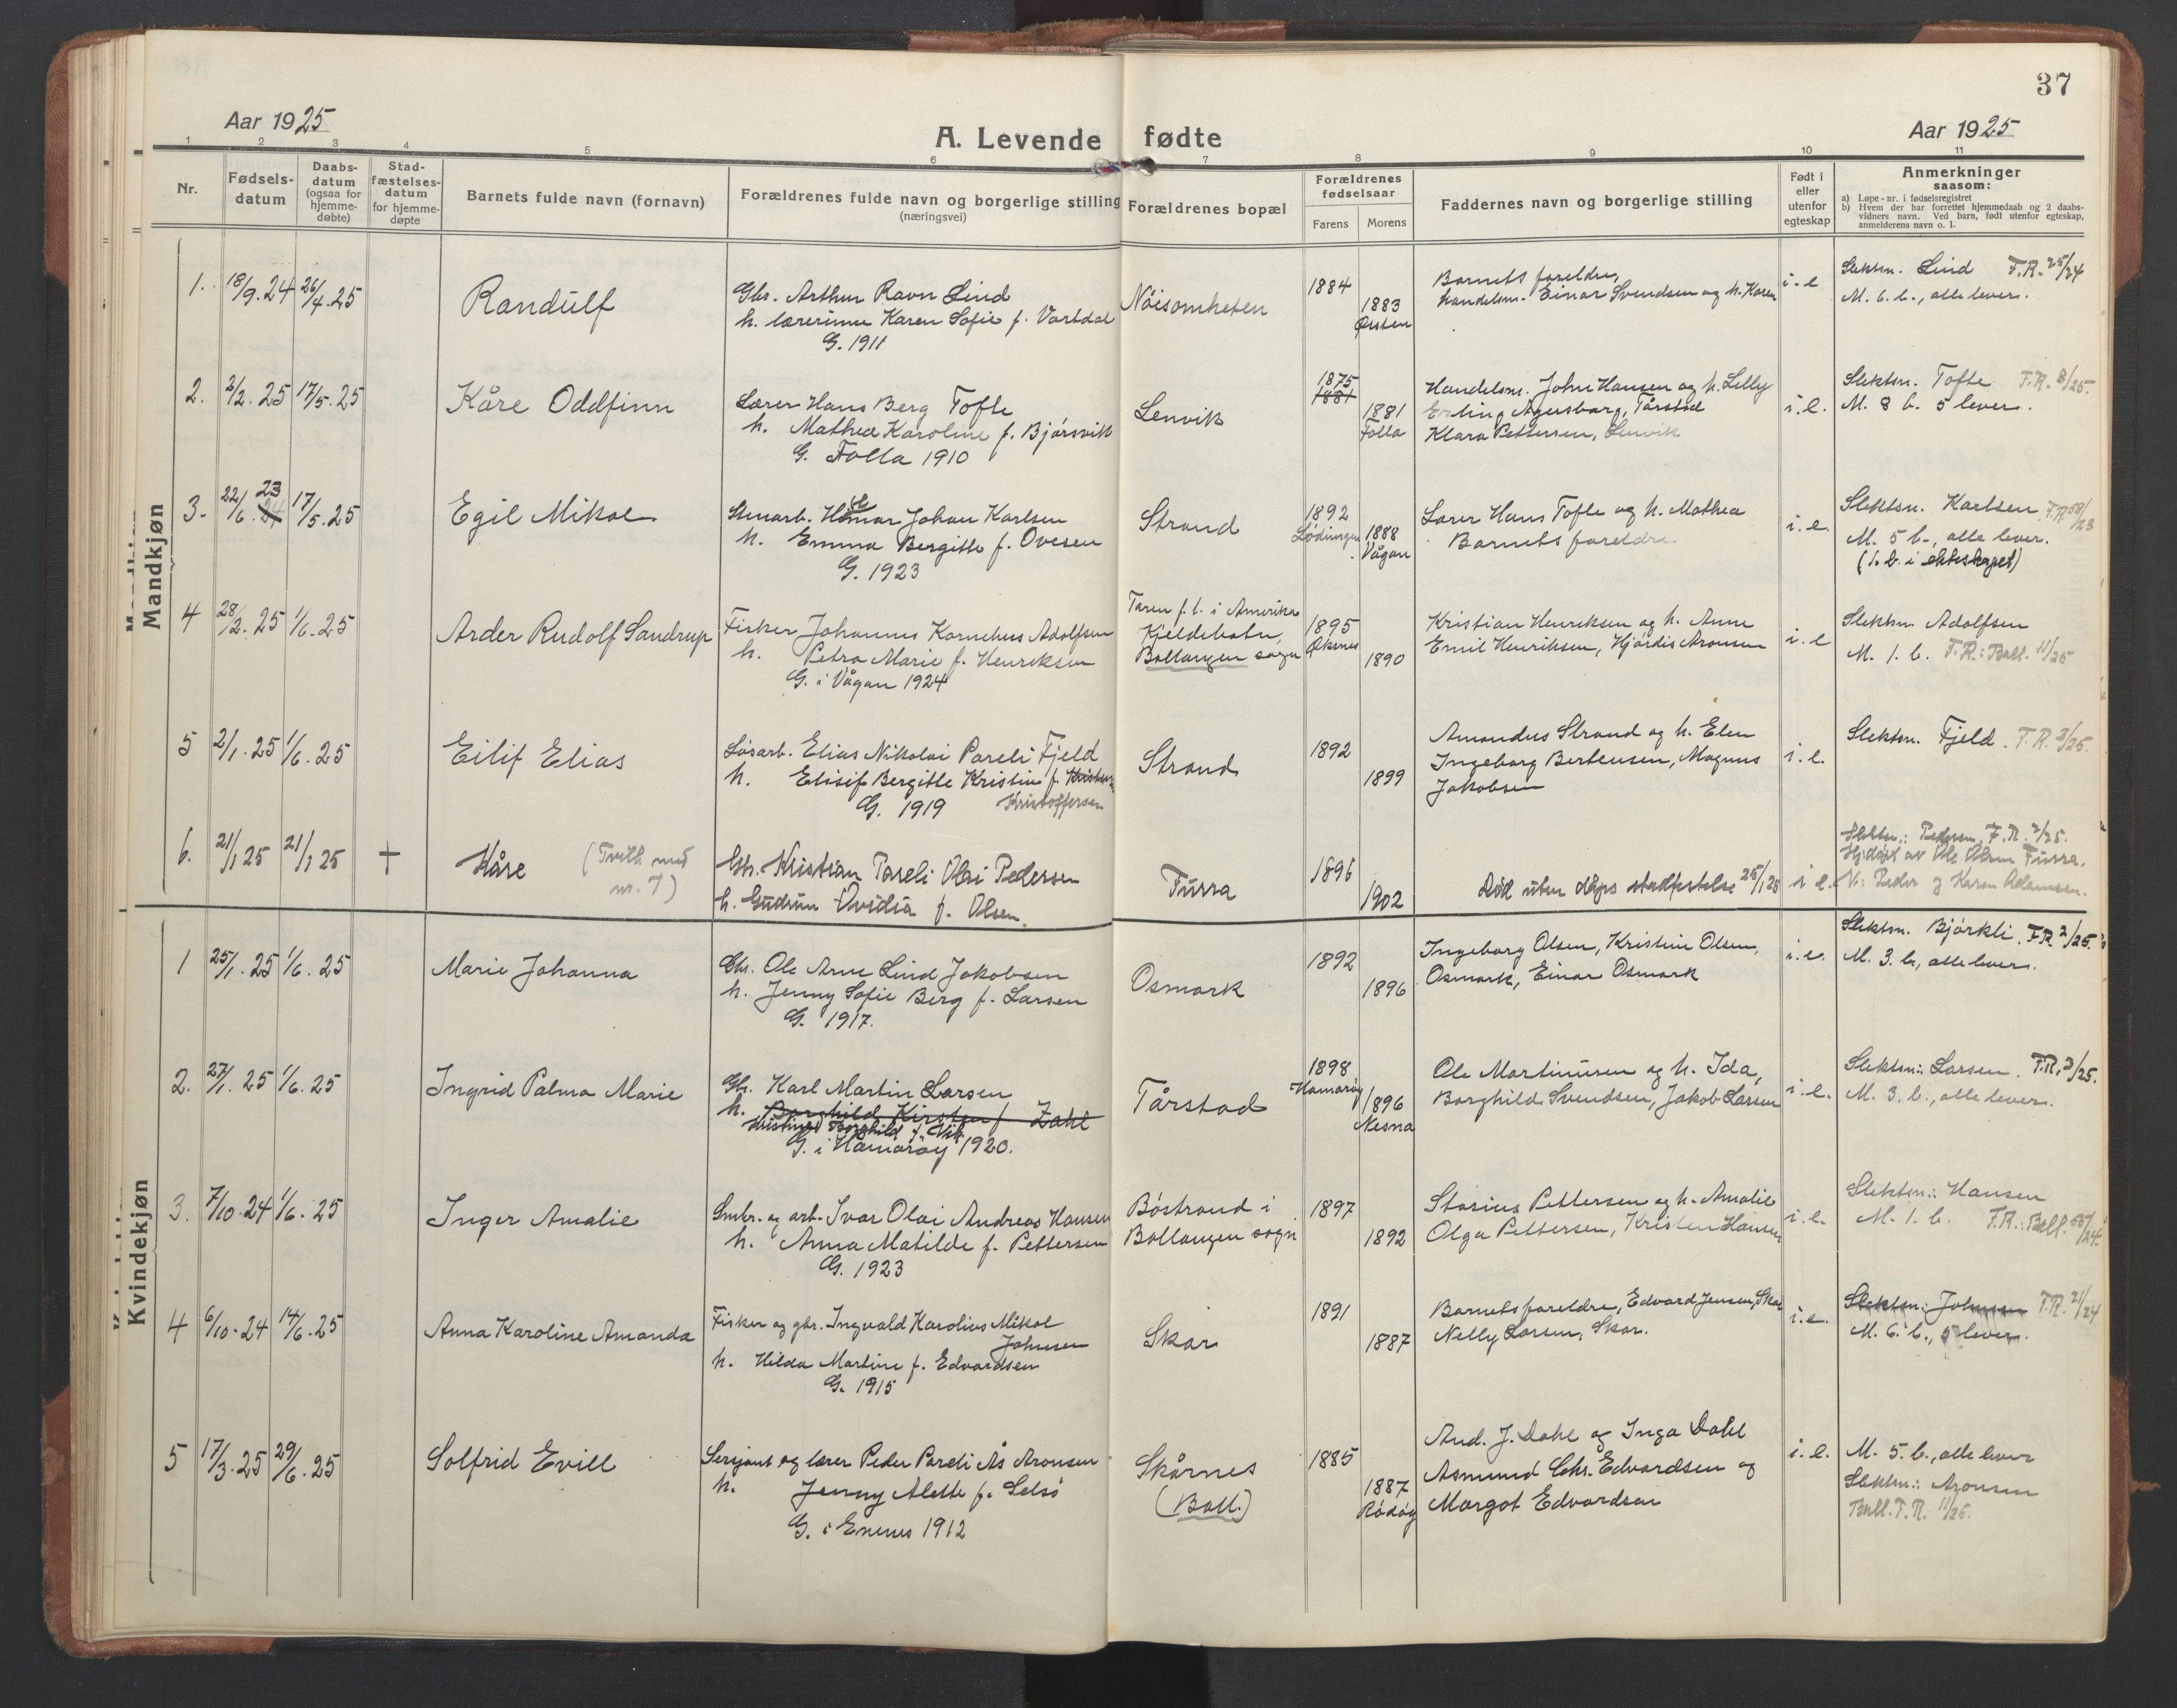 37
Aar 1925
A. Levende fødte
Aar 1925
1 2 3 4 5 6 7 8 9 10 11
Nr.
Fødsels-
datum
Daabs-
datum
(ogsaa for
hjemme-
døbte)
Stad-
fæstelses-
datum
for hjemme-
døpte
Barnets fulde navn (fornavn)
Forældrenes fulde navn og borgerlige stilling
(næringsvei)
Forældrenes bopæl
Forældrenes
fødselsaar
Farens Morens
Faddernes navn og borgerlige stilling
Født i
eller
utenfor
egteskap
Anmerkninger
saasom:
a) Løpe-nr. i fødselsregistret
b) Hvem der har forrettet hjemmedaab og 2 daabs-
vidners navn. Ved barn, født utenfor egteskap,
anmelderens navn o. l.
Mandkjøn
1. 18/9.24 26/4.25
Randulf
Gbr. Arthur Ravn Lind
h. lærerinne Karen Sofie f. Vartdal
G. 1911
Nöisomheten
1884
1883
Ørsten
Barnets foreldre,
handelsm. Einar Svendsen og h. Karen
i.e
Slektsn. Lind F.R. 25/24
M. 6 b., alle lever.
2. 2/2.25 17/5.25
Kåre Oddfinn
Lærer Hans Berg Tofte
h. Mathea Karoline f. Bjørsvik
G. Folla 1910
Lenvik
1875
1881
1881
Folla
Handelsm. John Hansen og h. Lilly
Erling Agersborg, Tårstad
Klara Pettersen, Lenvik
i.e.
Slektsn. Tofte F.R. 8/25.
M. 8 b. 5 lever.
3. 22/6.24 23 17/5.25
Egil Mikal
Stenarb. Hilmar Johan Karlsen
h. Emma Bergitte f. Ovesen
G. 1923
Strand
1892
Lødingen
1888
Vågan
Lærer Hans Tofte og h. Mathea
Barnets foreldre.
i.e.
Slektsn. Karlsen F.R. 58/23
M. 5 b., alle lever.
(1. b. i ekteskapet)
4 28/2.25 1/6.25
Arder Rudolf Sandrup
Fisker Johannes Kornelius Adolfsen
h. Petra Marie f. Henriksen
G. i Vågan 1924
Faren f.t. i Amerika
Kjeldebotn,
Ballangen sogn
1895
Øksnes
1890
Kristian Henriksen og h. Anne
Emil Henriksen, Hjørdis Aronsen
i.e
Slektsn. Adolfsen
M. 1. b. F.R.: Ball. 11/25
5 2/1.25 1/6.25
Eilif Elias
Løsarb. Elias Nikolai Pareli Fjeld
h. Elisif Bergitte Kristine f.
Kristoffersen
G. 1919
Strand
1892
1899
Amandus Strand og h. Elen
Ingeborg Berteusen, Magnus
Jakobsen
i.e.
Slektsn. Fjeld. F.R. 3/25.
6. 21/1 25 21/1 25 +
Kåre (Tvill. med
nr. 7)
Gbr. Kristian Pareli Olai Pedersen
h. Gudrun Ovidia f. Olsen.
Furra
1896
1902
Død uten dåps stadfestelse 25/1 25
i e.
Slektsn.: Pedersen F.R. 2/25.
Hj.døpt av Ole Olsen Furra.
V: Peder og Karen Adamsen.
Kvindekjøn
1 25/1.25 1/6.25
Marie Johanna
Gbr. Ole Arne Lind Jakobsen
h. Jenny Sofie Berg f. Larsen
G. 1917.
Osmark
1892
1896
Ingeborg Olsen, Kristine Olsen,
Osmark, Einar Osmark
i.e.
Slektsn. Bjørkli. F.R. 2/25.
M. 3. b., alle lever.
2. 27/1.25 1/6.25
Ingrid Palma Marie
Gbr. Karl Martin Larsen
h. Borghild Kirsten f. Zahl
Kristine Borghild f. Vik
G. i Hamarøy 1920.
Tårstad
1898
Hamarøy
1896
Nesna
Ole Martinusen og h. Ida,
Borghild Svendsen, Jakob Larsen
i.e.
Slektsn.: Larsen. F.R. 3/25.
M. 3. b., alle lever.
3. 7/10.24 1/6.25
Inger Amalie
Smbr. og arb. Ivar Olai Andreas Hansen
h. Anna Matilde f. Pettersen
G. 1923
Bøstrand i
Ballangen sogn
1897
1892
Storius Pettersen og h. Amalie
Olga Pettersen, Kristen Hansen
i.e.
Slektsn.: Hansen
M. 1. b. F.R.: Ball. 58/24.
4 6/10.24 14/6.25
Anna Karoline Amanda
Fisker og gbr. Ingvald Karolius Mikal
Johnsen
h. Hilda Martine f. Edvardsen
G. 1915
Skar
1891
1887
Barnets foreldre, Edvard Jensen, Skar
Nelly Larsen, Skar.
i.e.
Slektsn.: Johnsen F.R. 21/24
M. 6. b., 5 lever.
5 17/3.25 29/6.25
Solfrid Evill
Sersjant og lærer Peder Pareli Ås Aronsen
h. Jenny Alette f. Selsø
G. i Evenes 1912
Skårnes
(Ball.)
1885
1887
Rødøy
And. J. Dahl og Inga Dahl
Asmund Chr. Edvardsen og
Margot Edvardsen
i.e.
M. 5. b., alle lever
Slektsn.: Aronsen
Ball. F.R. 11/25.